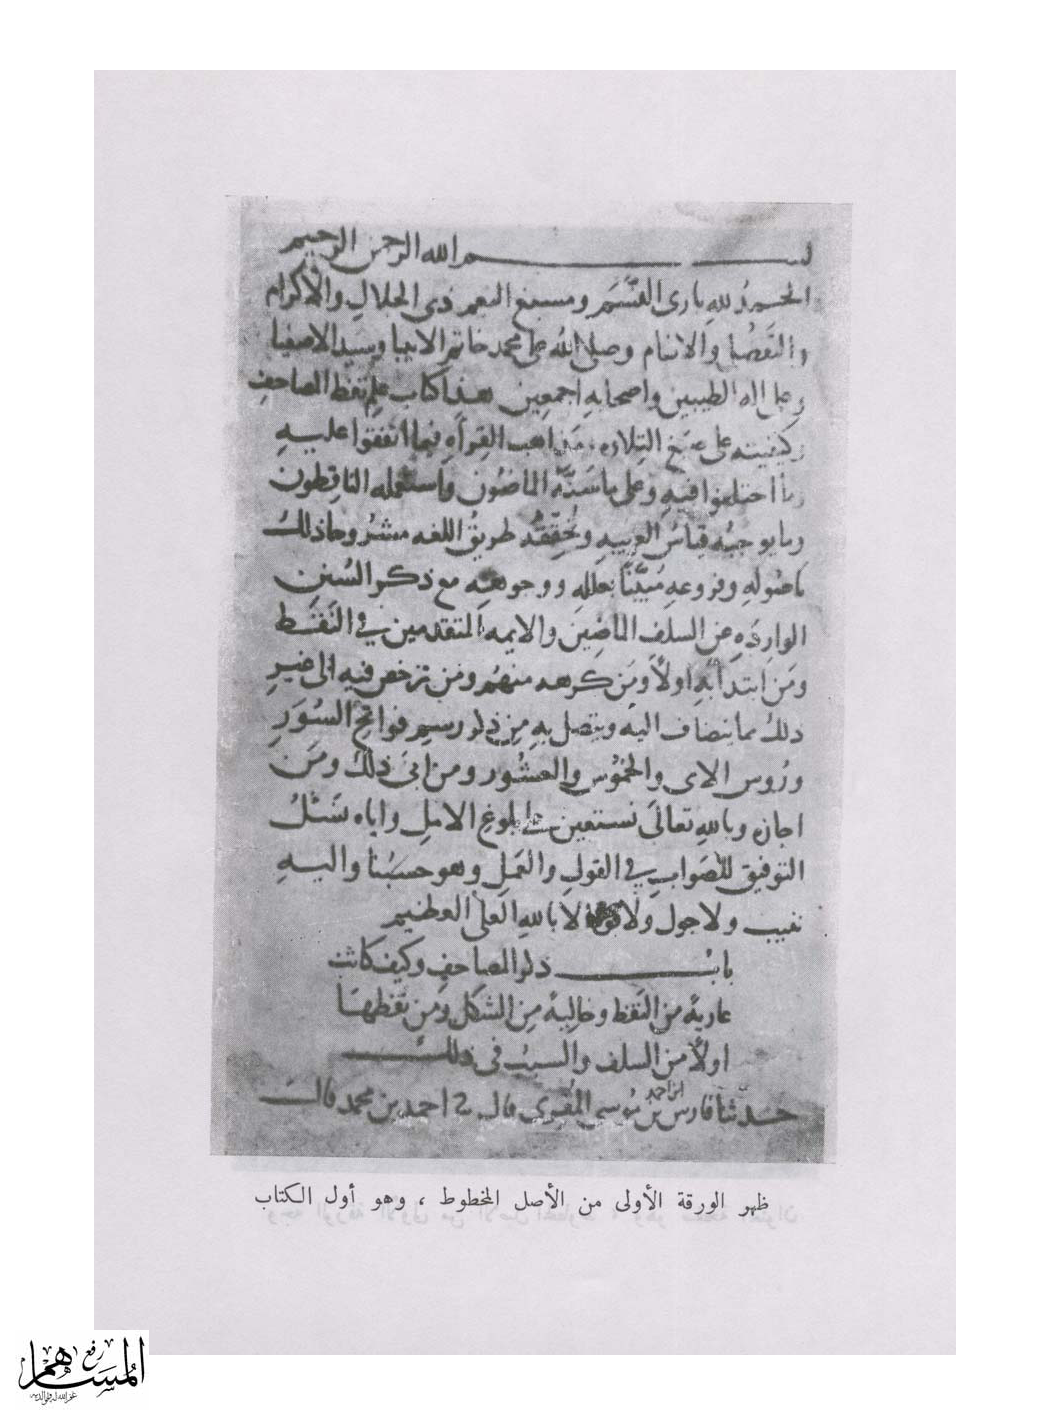 بسم الله الرحمن الرحيم
الحمد لله بارى النسم ومسبغ النعم ذى الجلال والاكرام
والتفضل والانعام وصلى الله على محمد خاتم الانبيا وسيد الاصفيا
وعلى اله الطيبين واصحابه اجمعين هذا كتاب علم نقط المصاحف
وكيفيته على صيغ التلاوه ومذاهب القراه فيما اتفقوا عليه
وما اختلفوا فيه وعلى ما سنه الماضون واستعمله الناقطون
وما يوجبه قياس العربيه وتحققه طريق اللغه مشروحا ذلك
باصوله وفروعه مبينا بعلله ووجوهه مع ذكر السنن
الوارده عن السلف الماضين والايمه المتقدمين في النقط
ومن ابتدا به اولا ومن كرهه منهم ومن ترخص فيه الى غير
ذلك مما ينضاف اليه ويتصل به من ذكر رسم فواتح السور
وروس الاى والخموس والعشور ومن ابى ذلك ومن
اجازه وبالله تعالى نستعين على بلوغ الامل واياه نسئل
التوفيق للصواب في القول والعمل وهو حسبنا واليه
ننيب ولا حول ولا قوة الا بالله العلى العظيم
باب ذكر المصاحف وكيف كانت
عارية من النقط وخالية من الشكل ومن نقطها
اولا من السلف والسبب فى ذلك
حدثنا فارس بن احمد بن موسى المقرى قال نا احمد بن محمد قال
ظهر الورقة الأولى من الأصل المخطوط ، وهو أول الكتاب
رفع
المساهم
غفر الله له ولوالديه